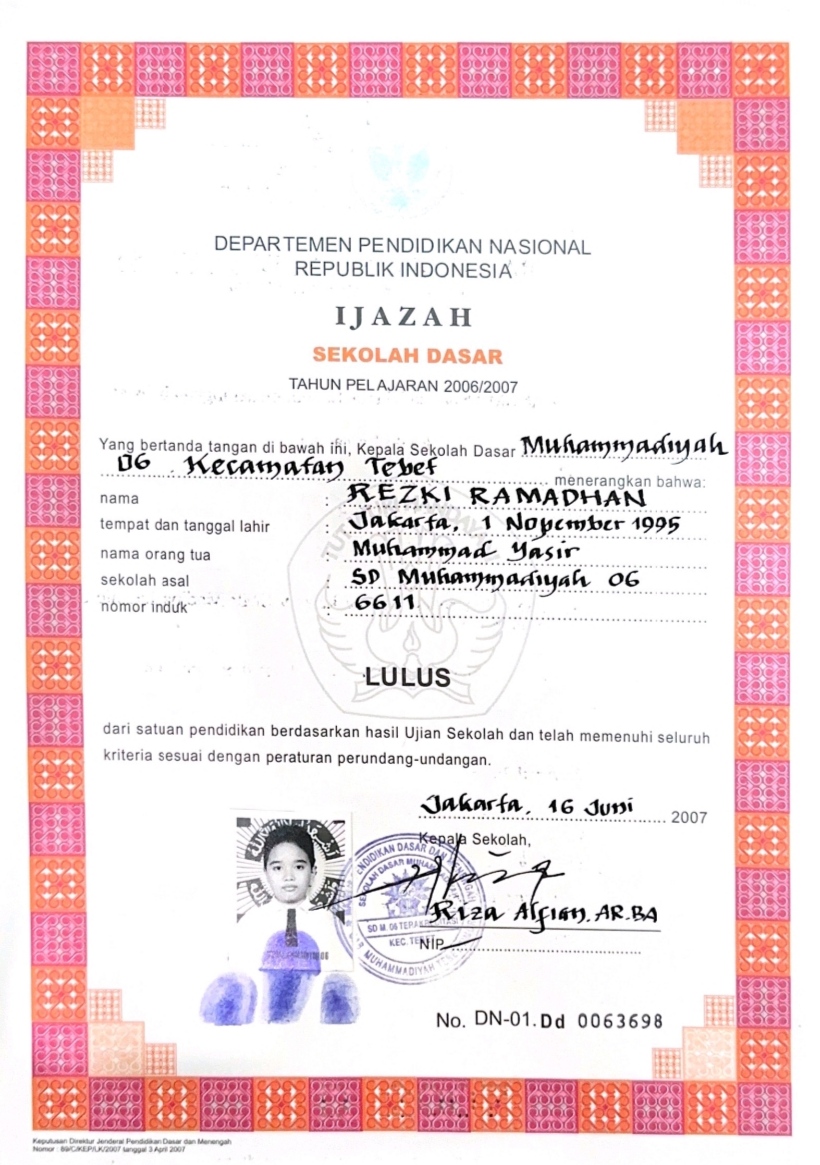 DEPARTEMEN PENDIDIKAN NASIONAL
REPUBLIK INDONESIA
IJAZAH
SEKOLAH DASAR
TAHUN PELAJARAN 2006/2007
Yang bertanda tangan di bawah ini, Kepala Sekolah Dasar Muhammadiyah
06 Kecamatan Tebet menerangkan bahwa:
nama : REZKI RAMADHAN
tempat dan tanggal lahir : Jakarta, 1 Nopember 1995
nama orang tua : Muhammad Yasir
sekolah asal : SD Muhammadiyah 06
nomor induk : 6611
LULUS
dari satuan pendidikan berdasarkan hasil Ujian Sekolah dan telah memenuhi seluruh
kriteria sesuai dengan peraturan perundang-undangan.
Jakarta, 16 Juni 2007
Kepala Sekolah,
PENDIDIKAN DASAR DAN
SEKOLAH DASAR MUHAMMADIYAH
SD M. 06
KEC. TEBET
MUHAMMADIYAH
Riza Alfian. AR.BA
NIP
No. DN-01. Dd 0063698
Keputusan Direktur Jenderal Pendidikan Dasar dan Menengah
Nomor : 89/C/KEP/LK/2007 tanggal 3 April 2007